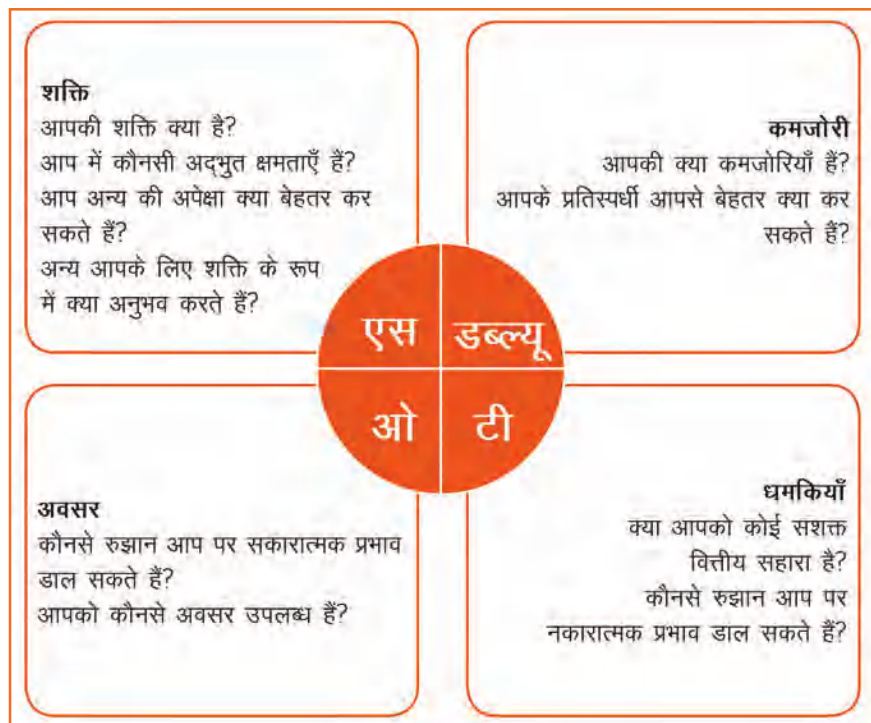 शक्ति
आपकी शक्ति क्या है?
आप में कौनसी अद्भुत क्षमताएँ हैं?
आप अन्य की अपेक्षा क्या बेहतर कर
सकते हैं?
अन्य आपके लिए शक्ति के रूप
में क्या अनुभव करते हैं?
कमजोरी
आपकी क्या कमजोरियाँ हैं?
आपके प्रतिस्पर्धी आपसे बेहतर क्या कर
सकते हैं?
एस
डब्ल्यू
ओ
टी
अवसर
कौनसे रुझान आप पर सकारात्मक प्रभाव
डाल सकते हैं?
आपको कौनसे अवसर उपलब्ध हैं?
धमकियाँ
क्या आपको कोई सशक्त
वित्तीय सहारा है?
कौनसे रुझान आप पर
नकारात्मक प्रभाव डाल सकते हैं?